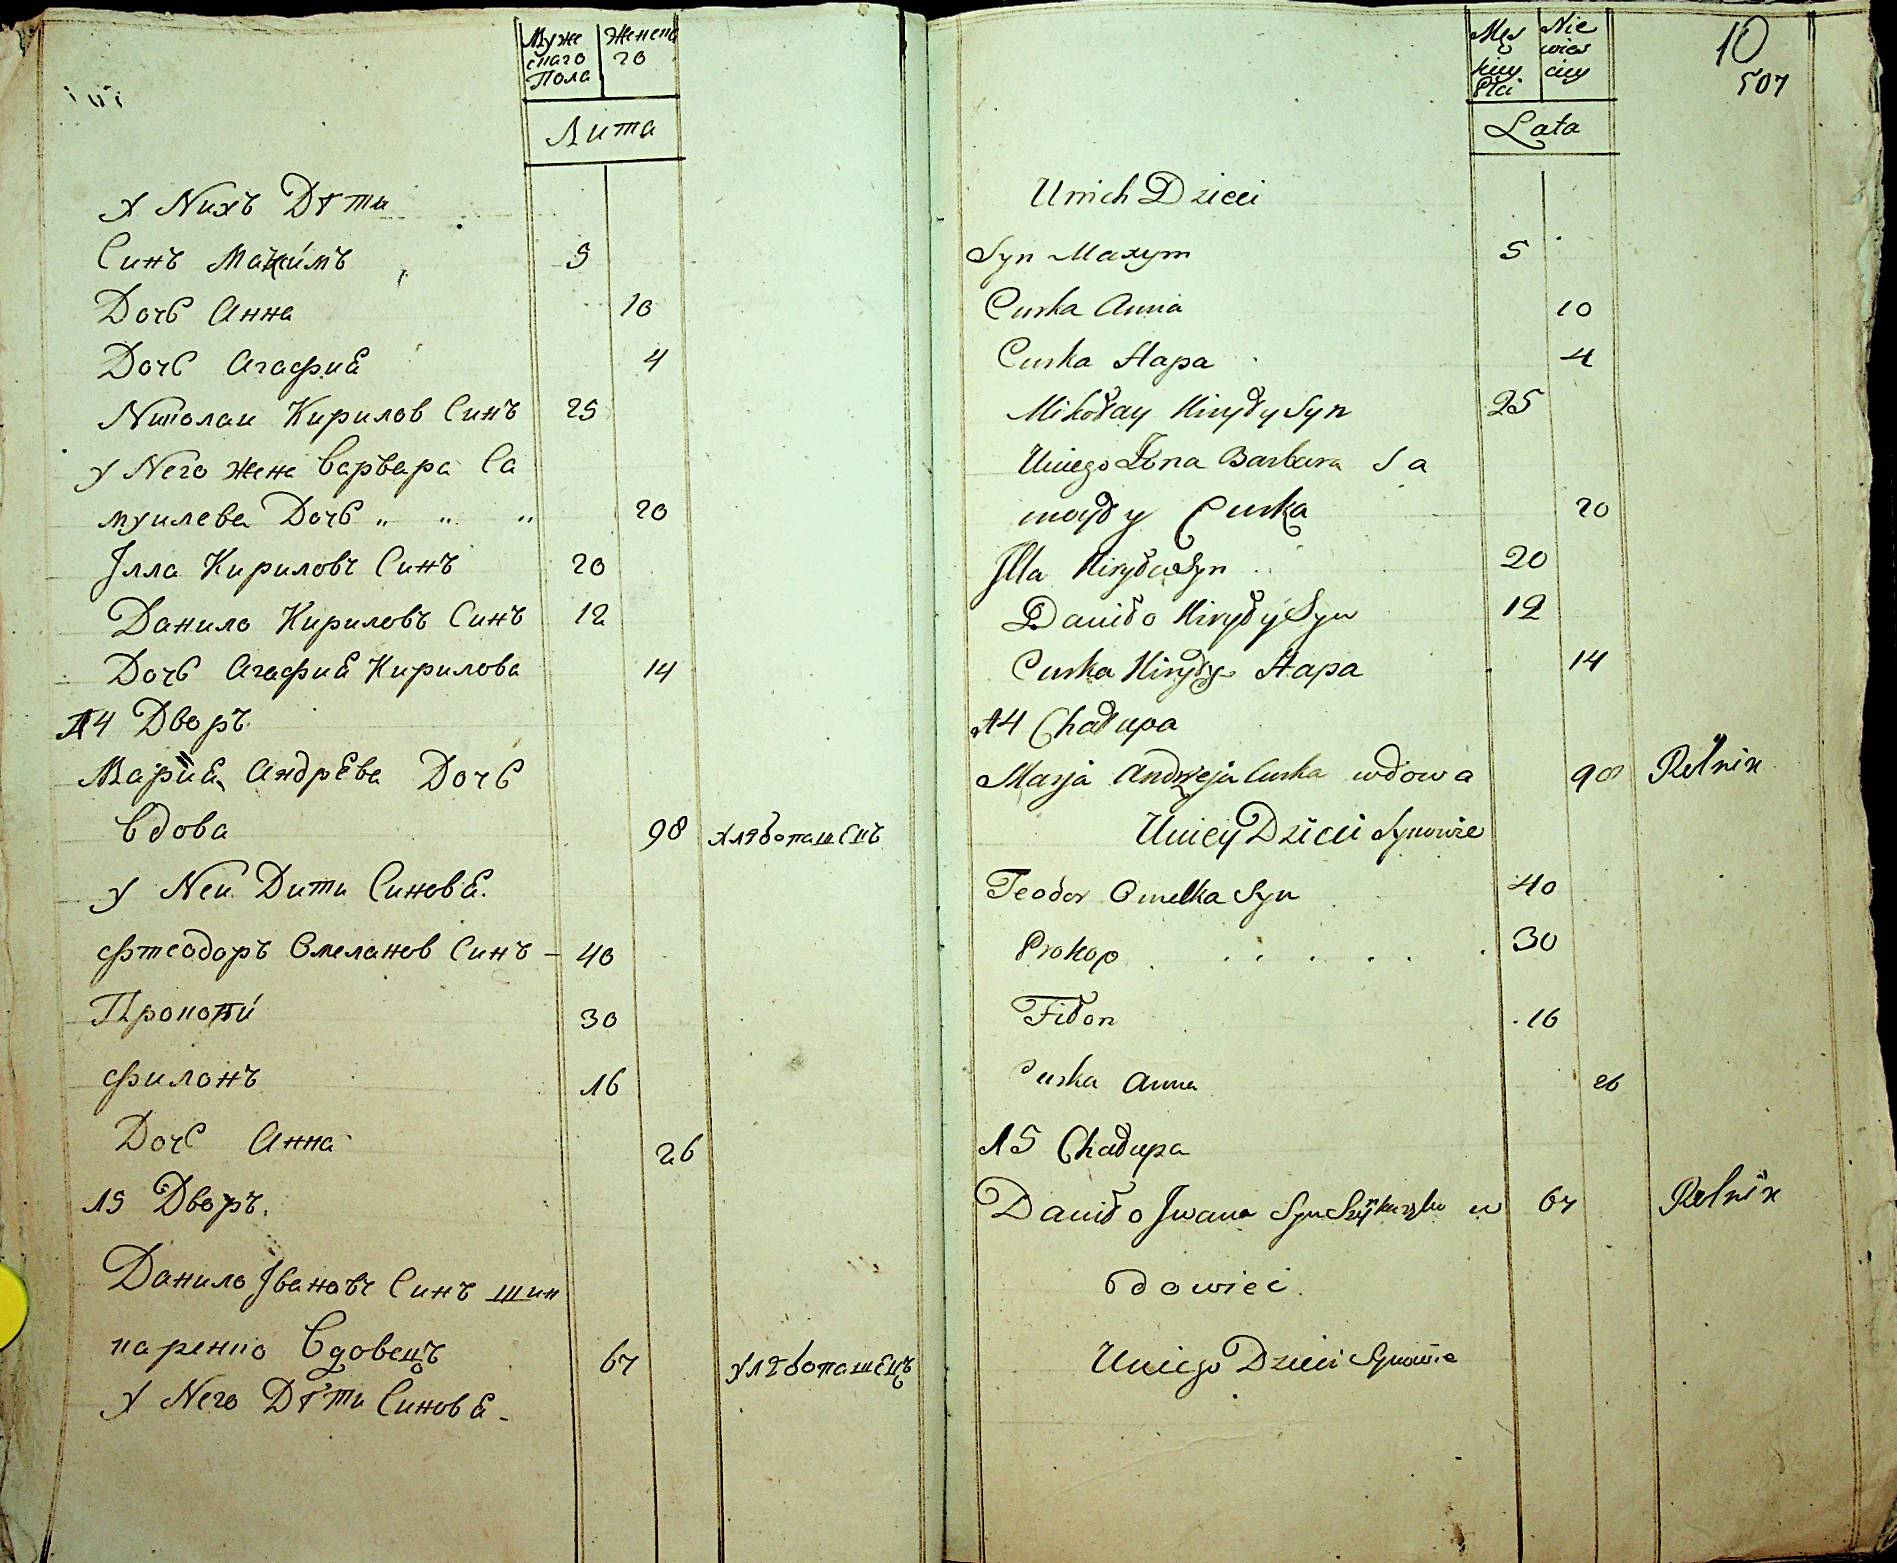 Муже Женска
скаго го
Пола
Лита
У Nихъ Дѣти
Синъ Макимъ 5
Дочь Анна 10
Дочь Агафиа 4
Nиколаи Кирилов Синъ 25
У Nего жена Варвара Са
муилева Дочь „ „ „ 20
Iлла Кириловъ Синъ 20
Данило Кириловъ Синъ 12
Дочь Агафиа Кирилова 14
14 Дворъ
Мариа Андрева Дочь
Вдова 98 хлѣбопашецъ
У Nеи Дити Синовa
Фтеодоръ Омеланов Синъ - 40
Прокопи 30
Филонъ 16
Дочь Анна 26
15 Дворъ.
Данило Iвановъ Синъ Шин
каренко Вдовецъ 67 хлѣбопашецъ
У Nего Дѣти Синовa -
Męs Nie
kiey wies
Płci ciey
Lata
10
507
Unich Dzieci
Syn Maxym 5
Curka Anna 10
Curka Hapa 4
Mikołay Kiryły Syn 25
Uniego Żona Barbara Sa
mayły Curka 20
Jlla Kiryła Syn 20
Daniło Kiryły Syn 12
Curka Kiryły Hapa 14
14 Chałupa
Marja Andrzeja Curka wdowa 98 Rolnik
Uniey Dzieci Synowie
Teodor Omelka Syn 40
Prokop 30
Fiłon 16
Curka Anna 26
15 Chałupa
Daniło Jwana Syn Szynkarenko w 67 Rolnik
dowiec
Uniego Dzieci Synowie